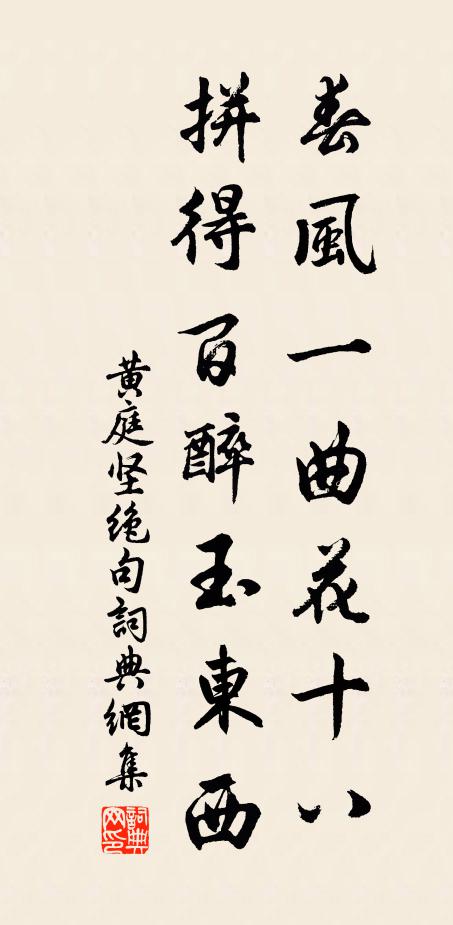 春風一曲花十八
拼得百醉玉東西
黄庭坚绝句詞典網集
詞典网印